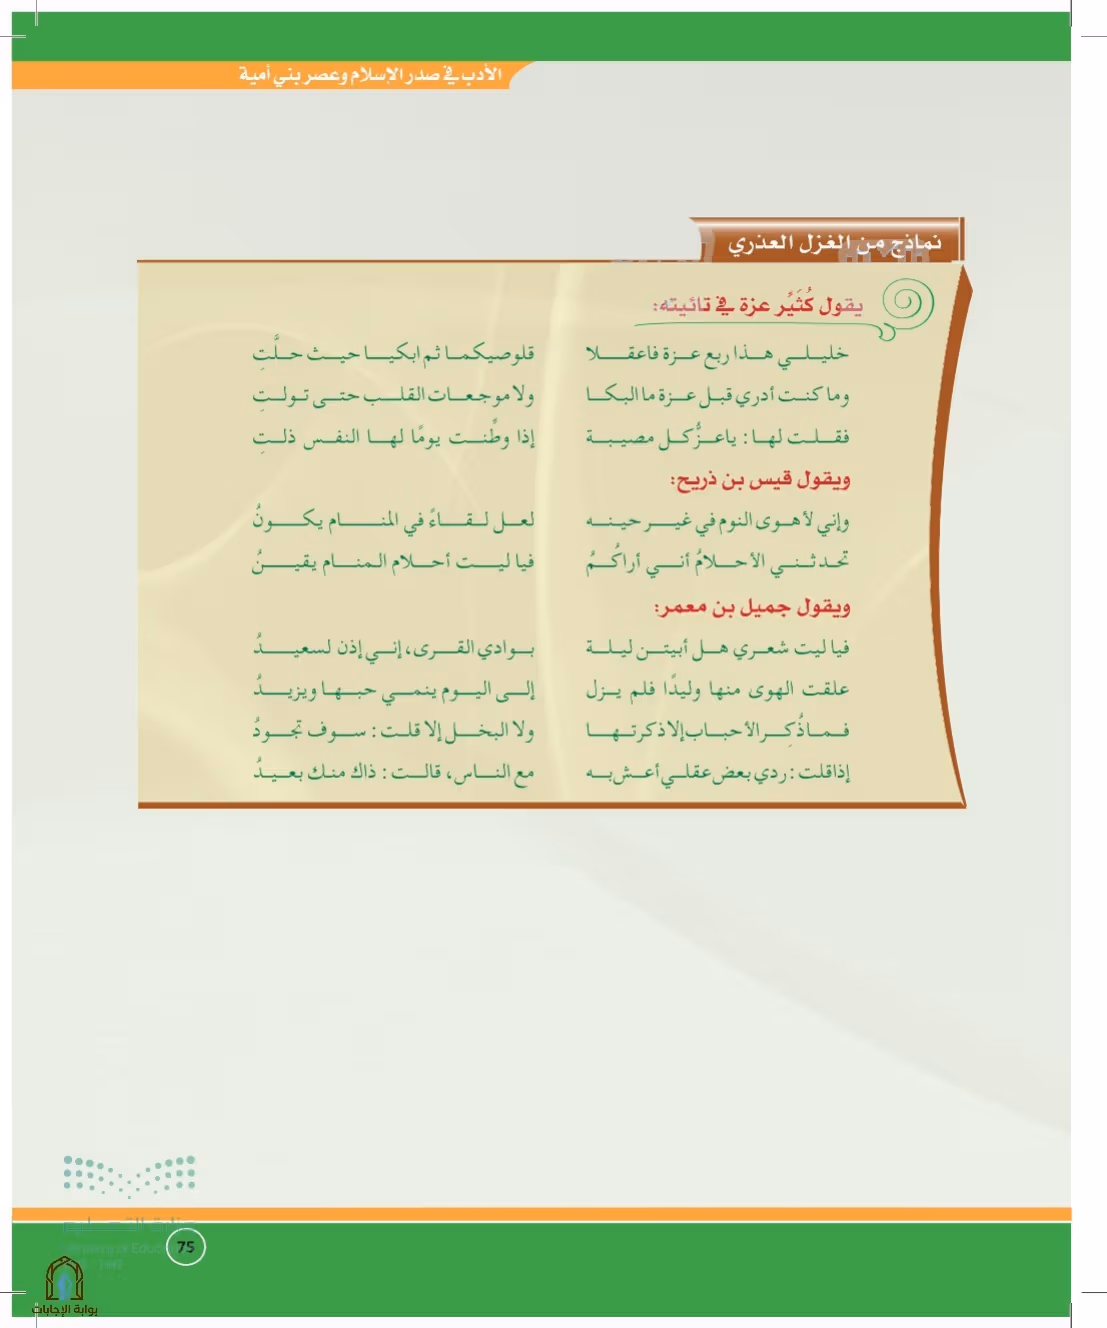 الأدب في صدر الإسلام وعصر بني أمية
نماذج من الغزل العذري
يقول كُثَيِّر عزة في تائيته:
خليلي هذا ربع عزة فاعقلا قلوصيكما ثم ابكيا حيث حلَّتِ
وما كنت أدري قبل عزة ما البكا ولا موجعات القلب حتى تولتِ
فقلت لها: يا عزُّ كل مصيبة إذا وطِّنت يومًا لها النفس ذلتِ
ويقول قيس بن ذريح:
وإني لأهوى النوم في غير حينه لعل لقاءً في المنام يكونُ
تحدثني الأحلامُ أني أراكُمُ فيا ليت أحلام المنام يقينُ
ويقول جميل بن معمر:
فيا ليت شعري هل أبيتن ليلة بوادي القرى، إني إذن لسعيدُ
علقت الهوى منها وليدًا فلم يزل إلى اليوم ينمي حبها ويزيدُ
فما ذُكِر الأحباب إلا ذكرتها ولا البخل إلا قلت: سوف تجودُ
إذا قلت: ردي بعض عقلي أعش به مع الناس، قالت: ذاك منك بعيدُ
75
بوابة الإجابات